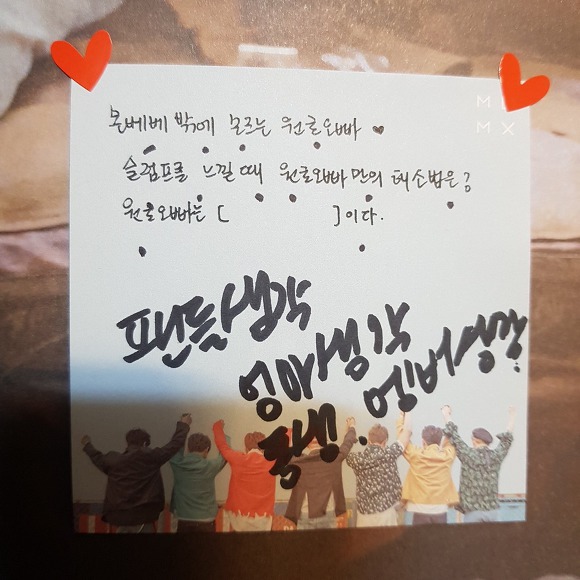 M
M X
몬베베 밖에 모르는 원호오빠 ♥
슬럼프를 느낄 때 원호오빠만의 해소법은?
원호오빠는 [ ]이다.
팬들생각
엄마생각
멤버생각